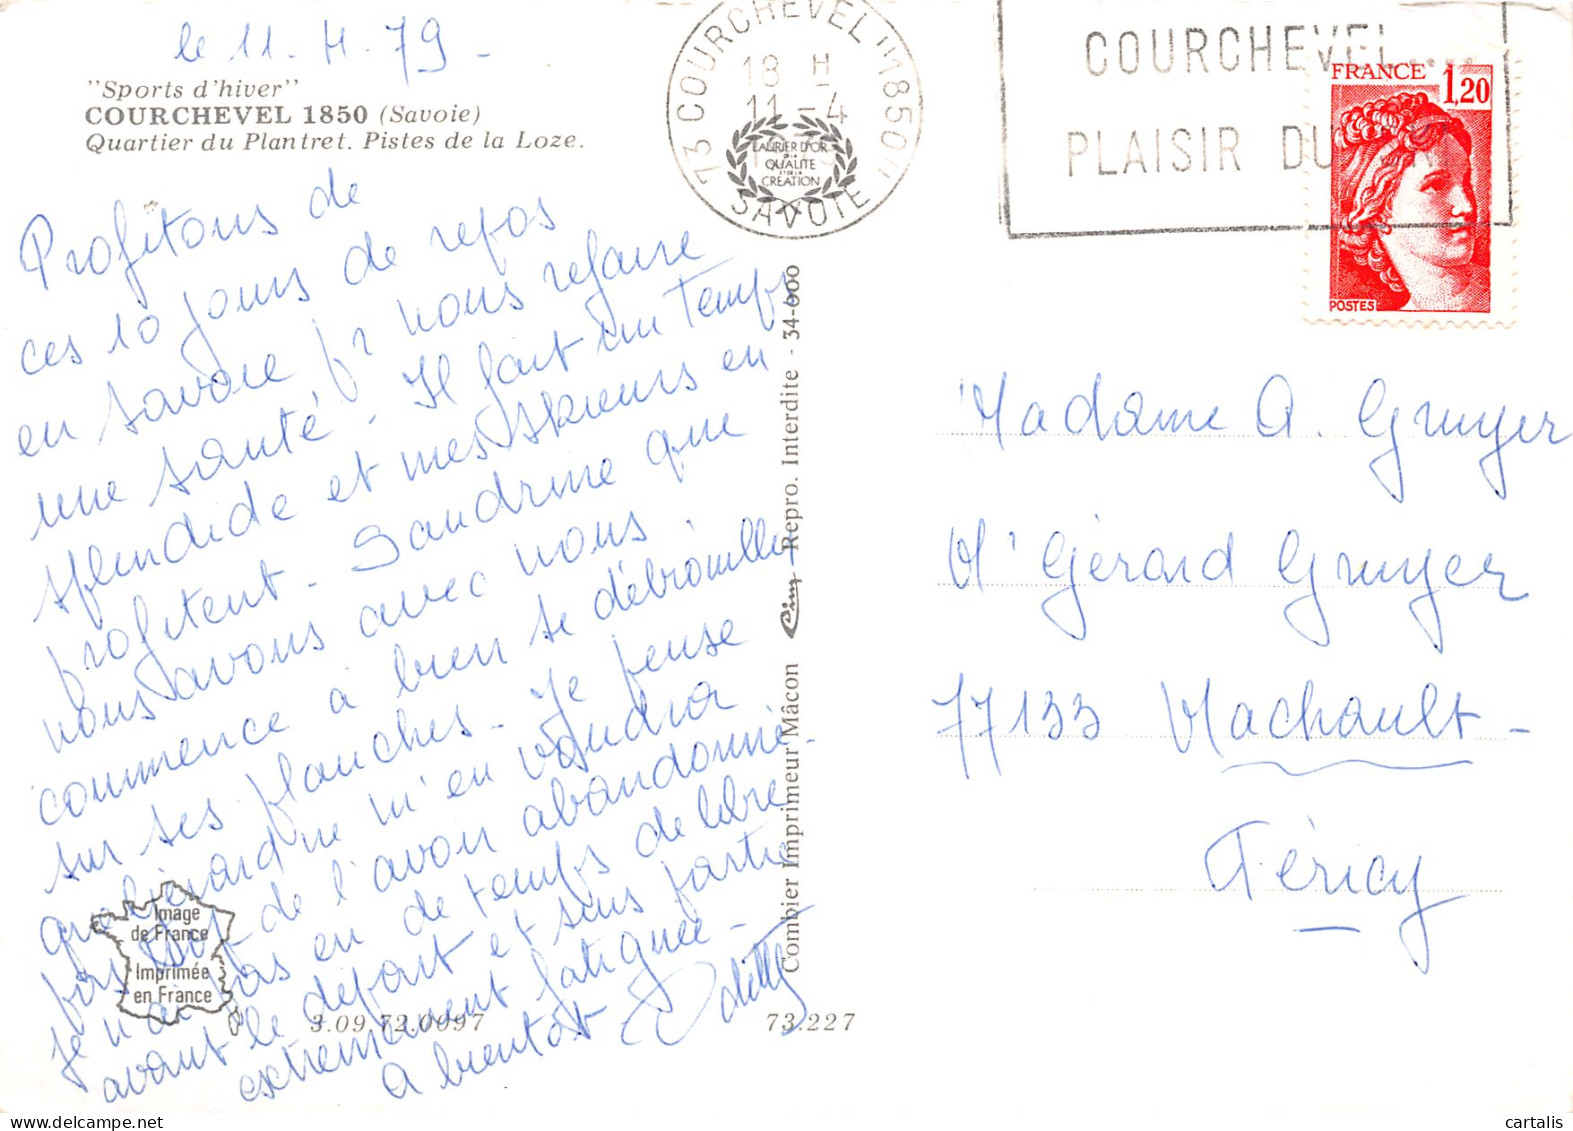 le 11. 4. 79 -
"Sports d'hiver"
COURCHEVEL 1850 (Savoie)
Quartier du Plantret. Pistes de la Loze.
Profitons de
ces 10 jours de repos
en Savoie pr nous refaire
une santé - Il fait un temps
splendide et mes skieurs en
profitent - Sandrine que
nous avons avec nous
commence à bien se débrouiller
sur ses planches - Je pense
que Gérard ne m'en voudra
pas de l'avoir abandonné -
je n'ai pas eu de temps de libre
avant le départ et suis partie
extrêmement fatiguée -
A bientôt
Image
de France
Imprimée
en France
3.09.72.0097
73.227
Combier Imprimeur Mâcon Cim Repro. Interdite - 34-000
73 COURCHEVEL "1850"
18 H
11 - 4
SAVOIE
LAURIER D'OR
DE LA
QUALITE
ET DE LA
CREATION
COURCHEVEL....
PLAISIR DU
FRANCE 1,20
POSTES
Madame A. Gruyer
M' Gérard Gruyer
77133 Machault -
Féricy
cartalis.com